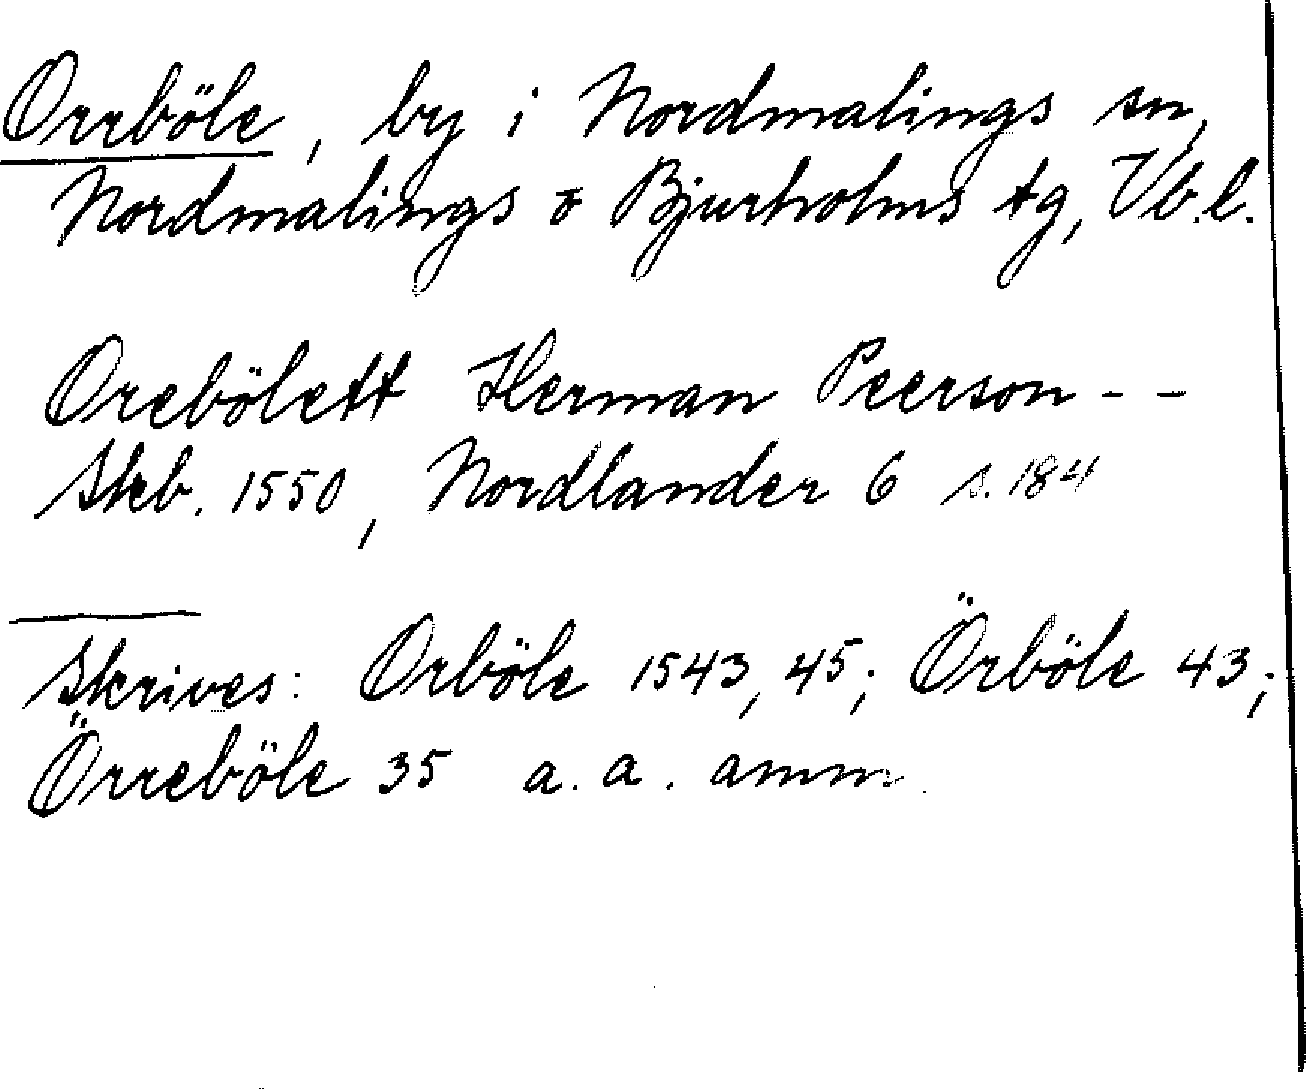 Orrböle, by i Nordmalings sn,
Nordmalings o Bjurholms tg, Vb.l.
Orebölett Herman Peerson - -
Skb. 1550, Nordlander 6 s. 184
Skrives: Orböle 1543, 45; Örböle 43;
Örreböle 35 a. a. anm.